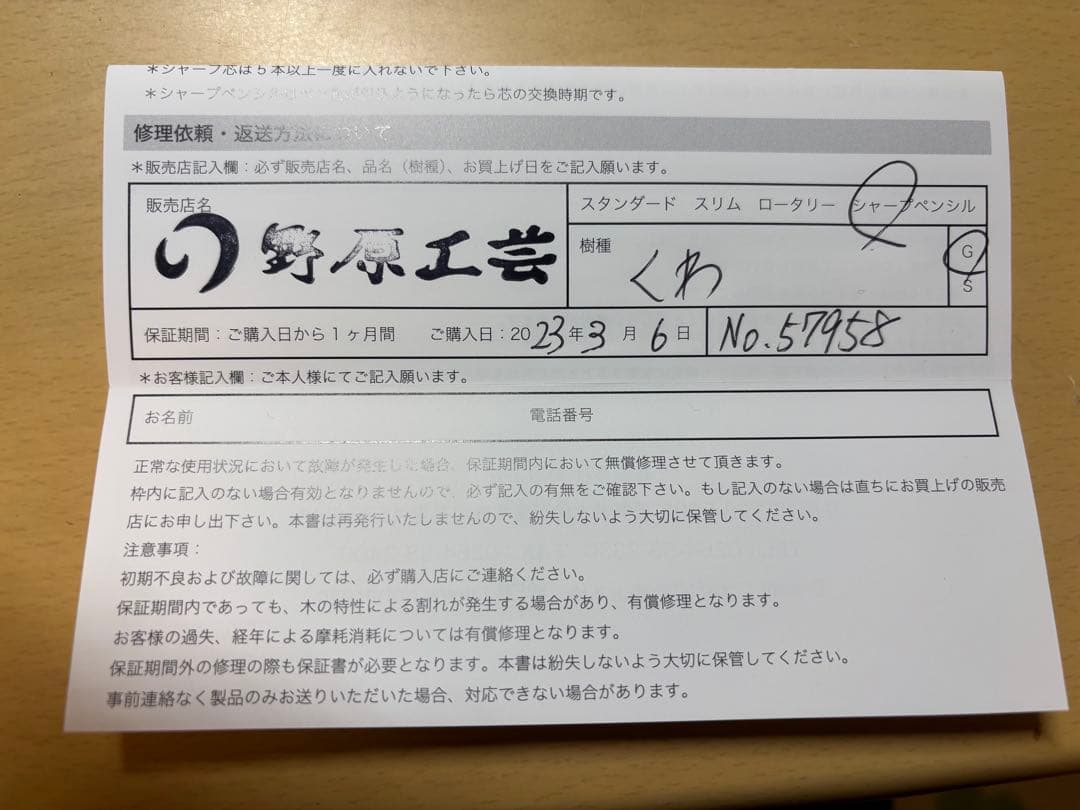 ＊シャープ芯は5本以上一度に入れないで下さい。
＊シャープペンシル ようになったら芯の交換時期です。
修理依頼・返送方法について
＊販売店記入欄：必ず販売店名、品名（樹種）、お買上げ日をご記入願います。
販売店名
野原工芸
スタンダード スリム ロータリー シャープペンシル
樹種
くわ
G
S
保証期間：ご購入日から1ヶ月間 ご購入日：2023年3月6日
No.57958
＊お客様記入欄：ご本人様にてご記入願います。
お名前 電話番号
正常な使用状況において故障が発生した場合、保証期間内において無償修理させて頂きます。
枠内に記入のない場合有効となりませんので、必ず記入の有無をご確認下さい。もし記入のない場合は直ちにお買上げの販売
店にお申し出下さい。本書は再発行いたしませんので、紛失しないよう大切に保管してください。
注意事項：
初期不良および故障に関しては、必ず購入店にご連絡ください。
保証期間内であっても、木の特性による割れが発生する場合があり、有償修理となります。
お客様の過失、経年による摩耗消耗については有償修理となります。
保証期間外の修理の際も保証書が必要となります。本書は紛失しないよう大切に保管してください。
事前連絡なく製品のみお送りいただいた場合、対応できない場合があります。